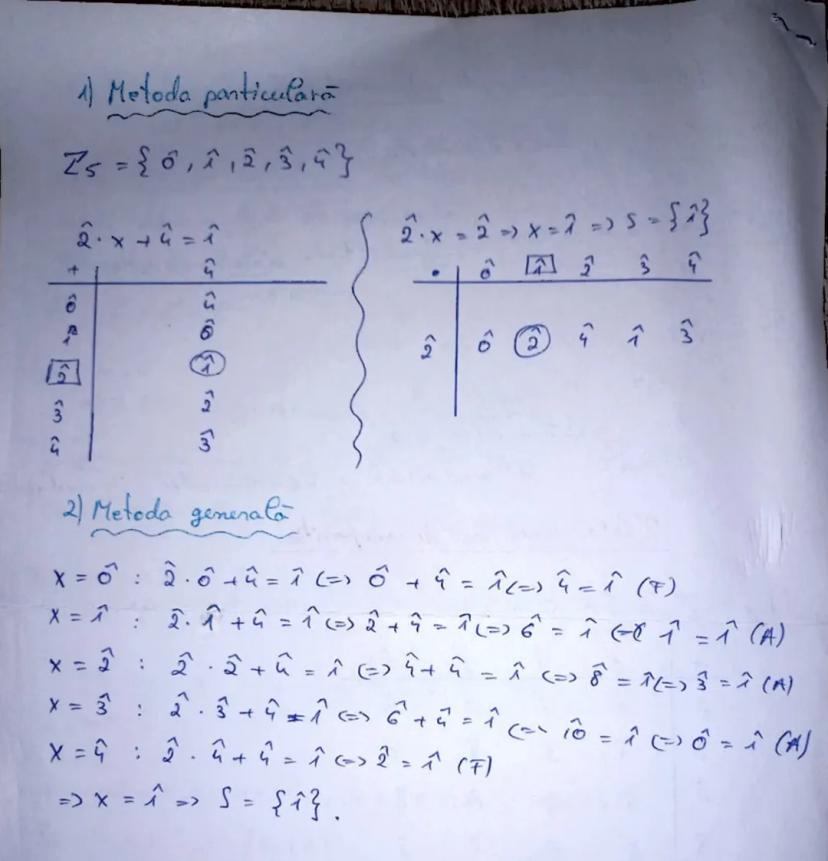 1) Metoda particulară
Z₅ = { 0̂ , 1̂ , 2̂ , 3̂ , 4̂ }
2̂ · x + 4̂ = 1̂
+ | 4̂
0̂ | 4̂
1̂ | 0̂
2̂ | 1̂
3̂ | 2̂
4̂ | 3̂
2̂ · x = 2̂ => x = 1̂ => S = {1̂}
· | 0̂ 1̂ 2̂ 3̂ 4̂
2̂ | 0̂ 2̂ 4̂ 1̂ 3̂
2) Metoda generală
x = 0̂ : 2̂ · 0̂ + 4̂ = 1̂ <=> 0̂ + 4̂ = 1̂ <=> 4̂ = 1̂ (F)
x = 1̂ : 2̂ · 1̂ + 4̂ = 1̂ <=> 2̂ + 4̂ = 1̂ <=> 6̂ = 1̂ <=> 1̂ = 1̂ (A)
x = 2̂ : 2̂ · 2̂ + 4̂ = 1̂ <=> 4̂ + 4̂ = 1̂ <=> 8̂ = 1̂ <=> 3̂ = 1̂ (A)
x = 3̂ : 2̂ · 3̂ + 4̂ = 1̂ <=> 6̂ + 4̂ = 1̂ <=> 10̂ = 1̂ <=> 0̂ = 1̂ (A)
x = 4̂ : 2̂ · 4̂ + 4̂ = 1̂ <=> 2̂ = 1̂ (F)
=> x = 1̂ => S = {1̂}.